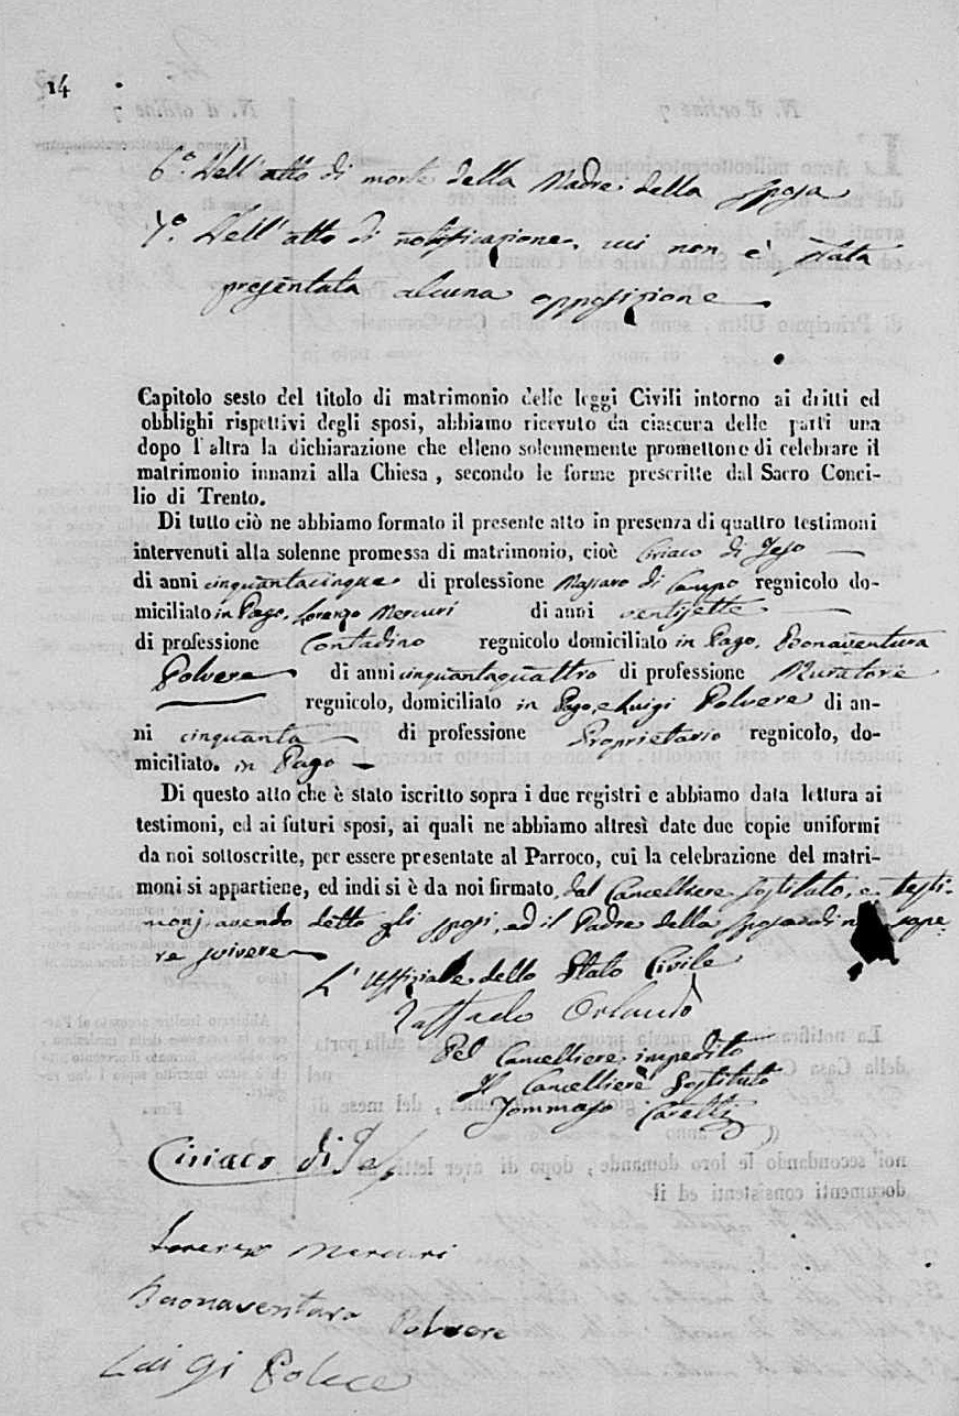 14
6.° Dell'atto di morte della Madre della sposa
7.° Dell'atto di notificazione, cui non è stata
presentata alcuna opposizione
Capitolo sesto del titolo di matrimonio delle leggi Civili intorno ai dritti ed
obblighi rispettivi degli sposi, abbiamo ricevuto da ciascura delle parti una
dopo l'altra la dichiarazione che elleno solennemente promettono di celebrare il
matrimonio innanzi alla Chiesa, secondo le forme prescritte dal Sacro Conci-
lio di Trento.
Di tutto ciò ne abbiamo formato il presente atto in presenza di quattro testimoni
intervenuti alla solenne promessa di matrimonio, cioè Ciriaco di Jeso
di anni cinquantacinque di professione Massaro di Campo regnicolo do-
miciliato in Pago, Lorenzo Mercuri di anni ventisette
di professione Contadino regnicolo domiciliato in Pago, Bonaventura
Polvere di anni cinquantaquattro di professione Muratore
regnicolo, domiciliato in Pago, e Luigi Polvere di an-
ni cinquanta di professione Proprietario regnicolo, do-
miciliato. in Pago
Di questo atto che è stato iscritto sopra i due registri e abbiamo data lettura ai
testimoni, ed ai futuri sposi, ai quali ne abbiamo altresì date due copie uniformi
da noi sottoscritte, per essere presentate al Parroco, cui la celebrazione del matri-
moni si appartiene, ed indi si è da noi firmato, dal Cancelliere sostituto, e testi-
monj, avendo detto gli sposi, ed il Padre della sposa di sape-
re scrivere
L'Uffiziale dello Stato Civile
Raffaele Orlando
Pel Cancelliere impedito
Il Cancelliere Sostituto
Tommaso Caretti
Ciriaco di Jeso
Lorenzo Mercuri
Buonaventura Polvere
Luigi Polvere